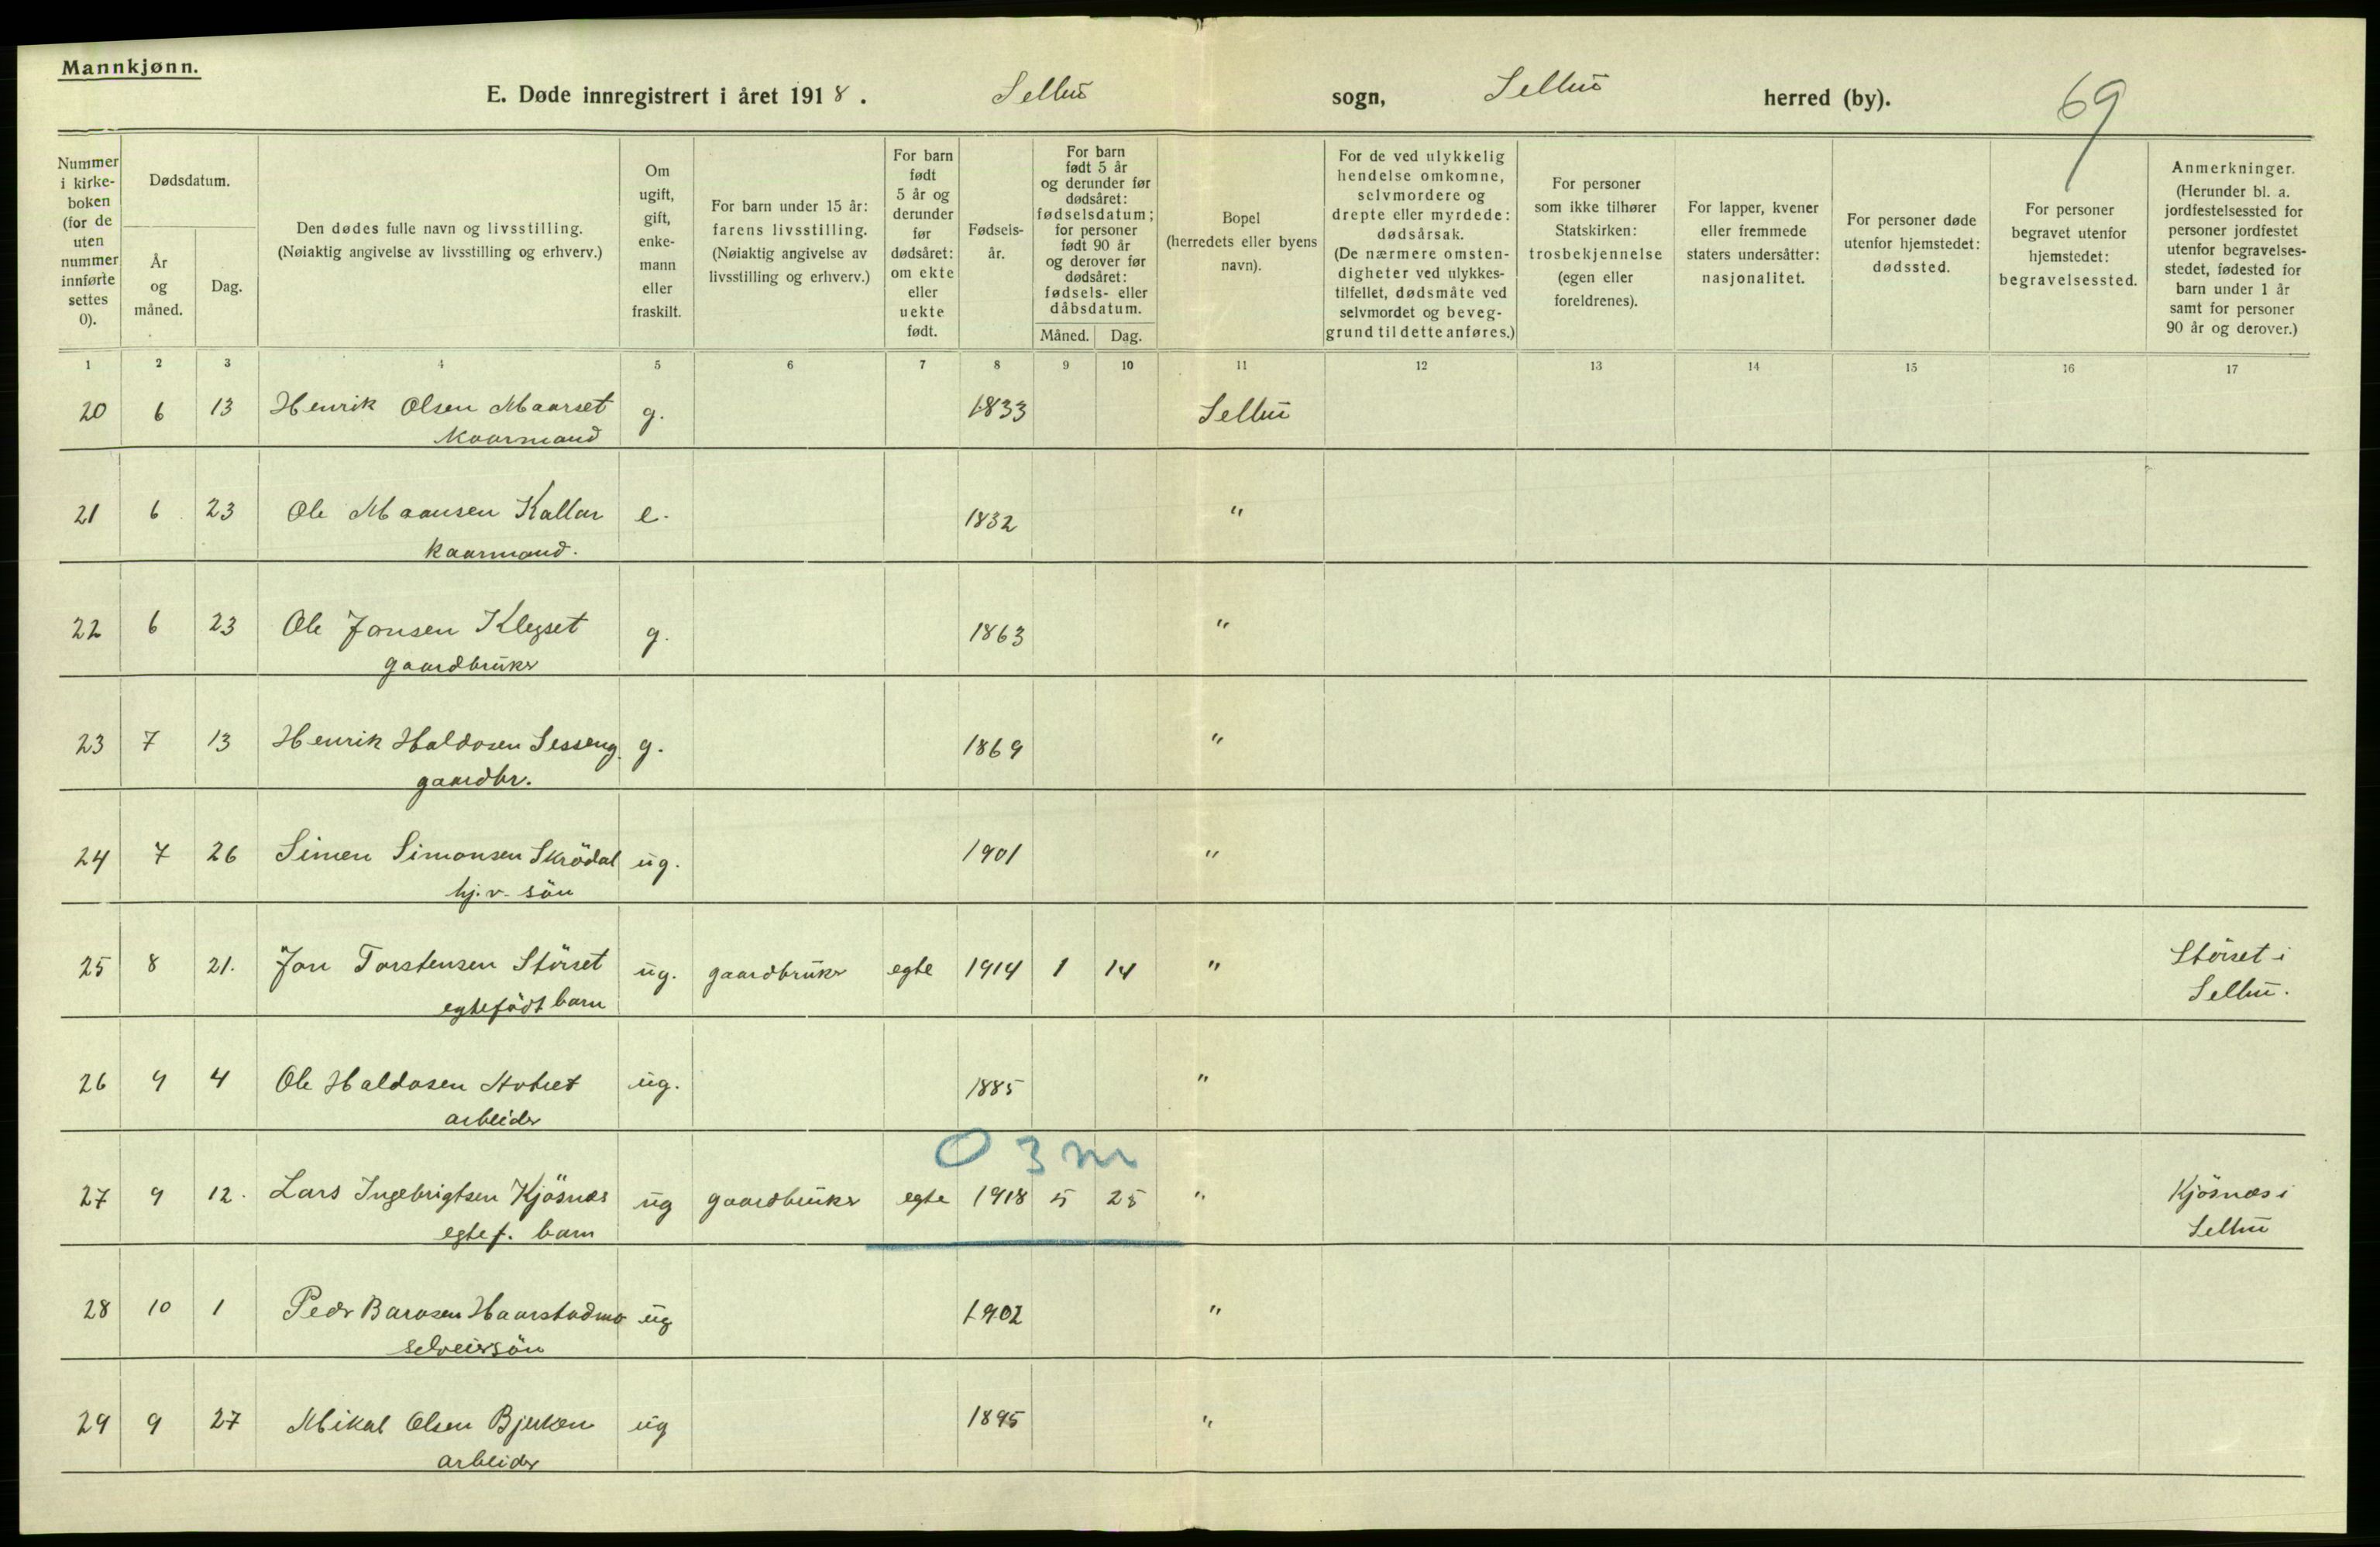 Mannkjønn.
E. Døde innregistrert i året 1918. Selbu sogn, Selbu herred (by).
69
Nummer i kirke- boken (for de uten nummer innførte settes 0).
Dødsdatum.
År og måned.
Dag.
Den dødes fulle navn og livsstilling.
(Nøiaktig angivelse av livsstilling og erhverv.)
Om ugift, gift, enke- mann eller fraskilt.
For barn under 15 år: farens livsstilling. (Nøiaktig angivelse av livsstilling og erhverv.)
For barn født 5 år og derunder før dødsåret: om ekte eller uekte født.
Fødsels- år.
For barn født 5 år og derunder før dødsåret: fødselsdatum; for personer født 90 år og derover før dødsåret: fødsels- eller dåbsdatum.
Måned. Dag.
Bopel (herredets eller byens navn).
For de ved ulykkelig hendelse omkomne, selvmordere og drepte eller myrdede: dødsårsak. (De nærmere omsten- digheter ved ulykkes- tilfellet, dødsmåte ved selvmordet og beveg- grund til dette anføres.)
For personer som ikke tilhører Statskirken: trosbekjennelse (egen eller foreldrenes).
For lapper, kvener eller fremmede staters undersåtter: nasjonalitet.
For personer døde utenfor hjemstedet: dødssted.
For personer begravet utenfor hjemstedet: begravelsessted.
Anmerkninger. (Herunder bl. a. jordfestelsessted for personer jordfestet utenfor begravelses- stedet, fødested for barn under 1 år samt for personer 90 år og derover.)
1 2 3 4 5 6 7 8 9 10 11 12 13 14 15 16 17
20 6 13 Henrik Olsen Maarset g. 1833 Selbu
Kaarmand
21 6 23 Ole Maansen Kallar e. 1832 "
Kaarmand.
22 6 23 Ole Jonsen Klegset g. 1863 "
gaardbruker
23 7 13 Henrik Haldosen Sesseng. g. 1869 "
gaardbr.
24 7 26 Simen Simonsen Skrödal ug. 1901 "
hj.v. sön
25 8 21. Jon Torstensen Störset ug. gaardbruker egte 1914 1 14 " Störset i
egtefödt barn Selbu.
26 9 4 Ole Haldosen ug. 1885 "
arbeider
0 3 m
27 9 12. Lars Ingebrigtsen Kjösnæs ug gaardbruker egte 1918 5 25 " Kjösnæs i
egtef. barn Selbu
28 10 1 Peder Barosen Haarstadmo ug 1902 "
selveiersön
29 9 27 Mikal Olsen ug 1895 "
arbeider